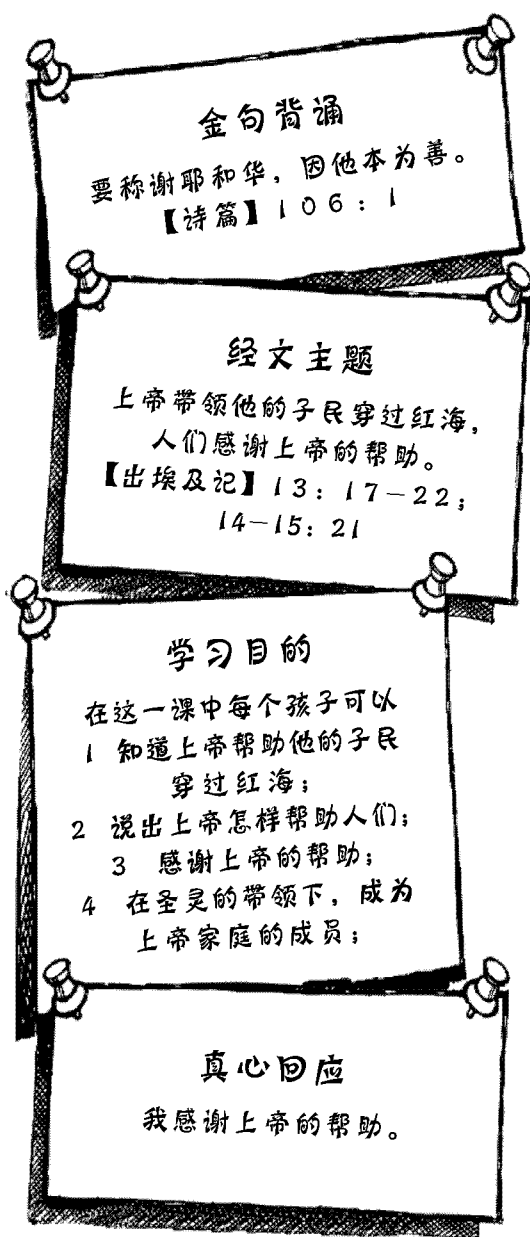 金句背诵
要称谢耶和华，因他本为善。
【诗篇】106：1
经文主题
上帝带领他的子民穿过红海，
人们感谢上帝的帮助。
【出埃及记】13：17－22；
14－15：21
学习目的
在这一课中每个孩子可以
1 知道上帝帮助他的子民
穿过红海；
2 说出上帝怎样帮助人们；
3 感谢上帝的帮助；
4 在圣灵的带领下，成为
上帝家庭的成员；
真心回应
我感谢上帝的帮助。